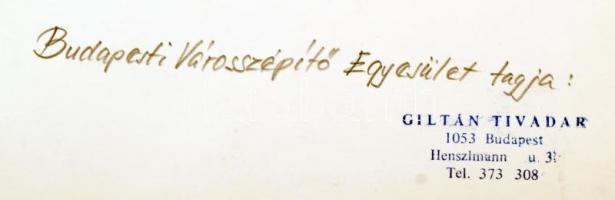 Budapesti Városszépítő Egyesület tagja:
GILTÁN TIVADAR
1053 Budapest
Henszlmann u. 3.
Tel. 373 308